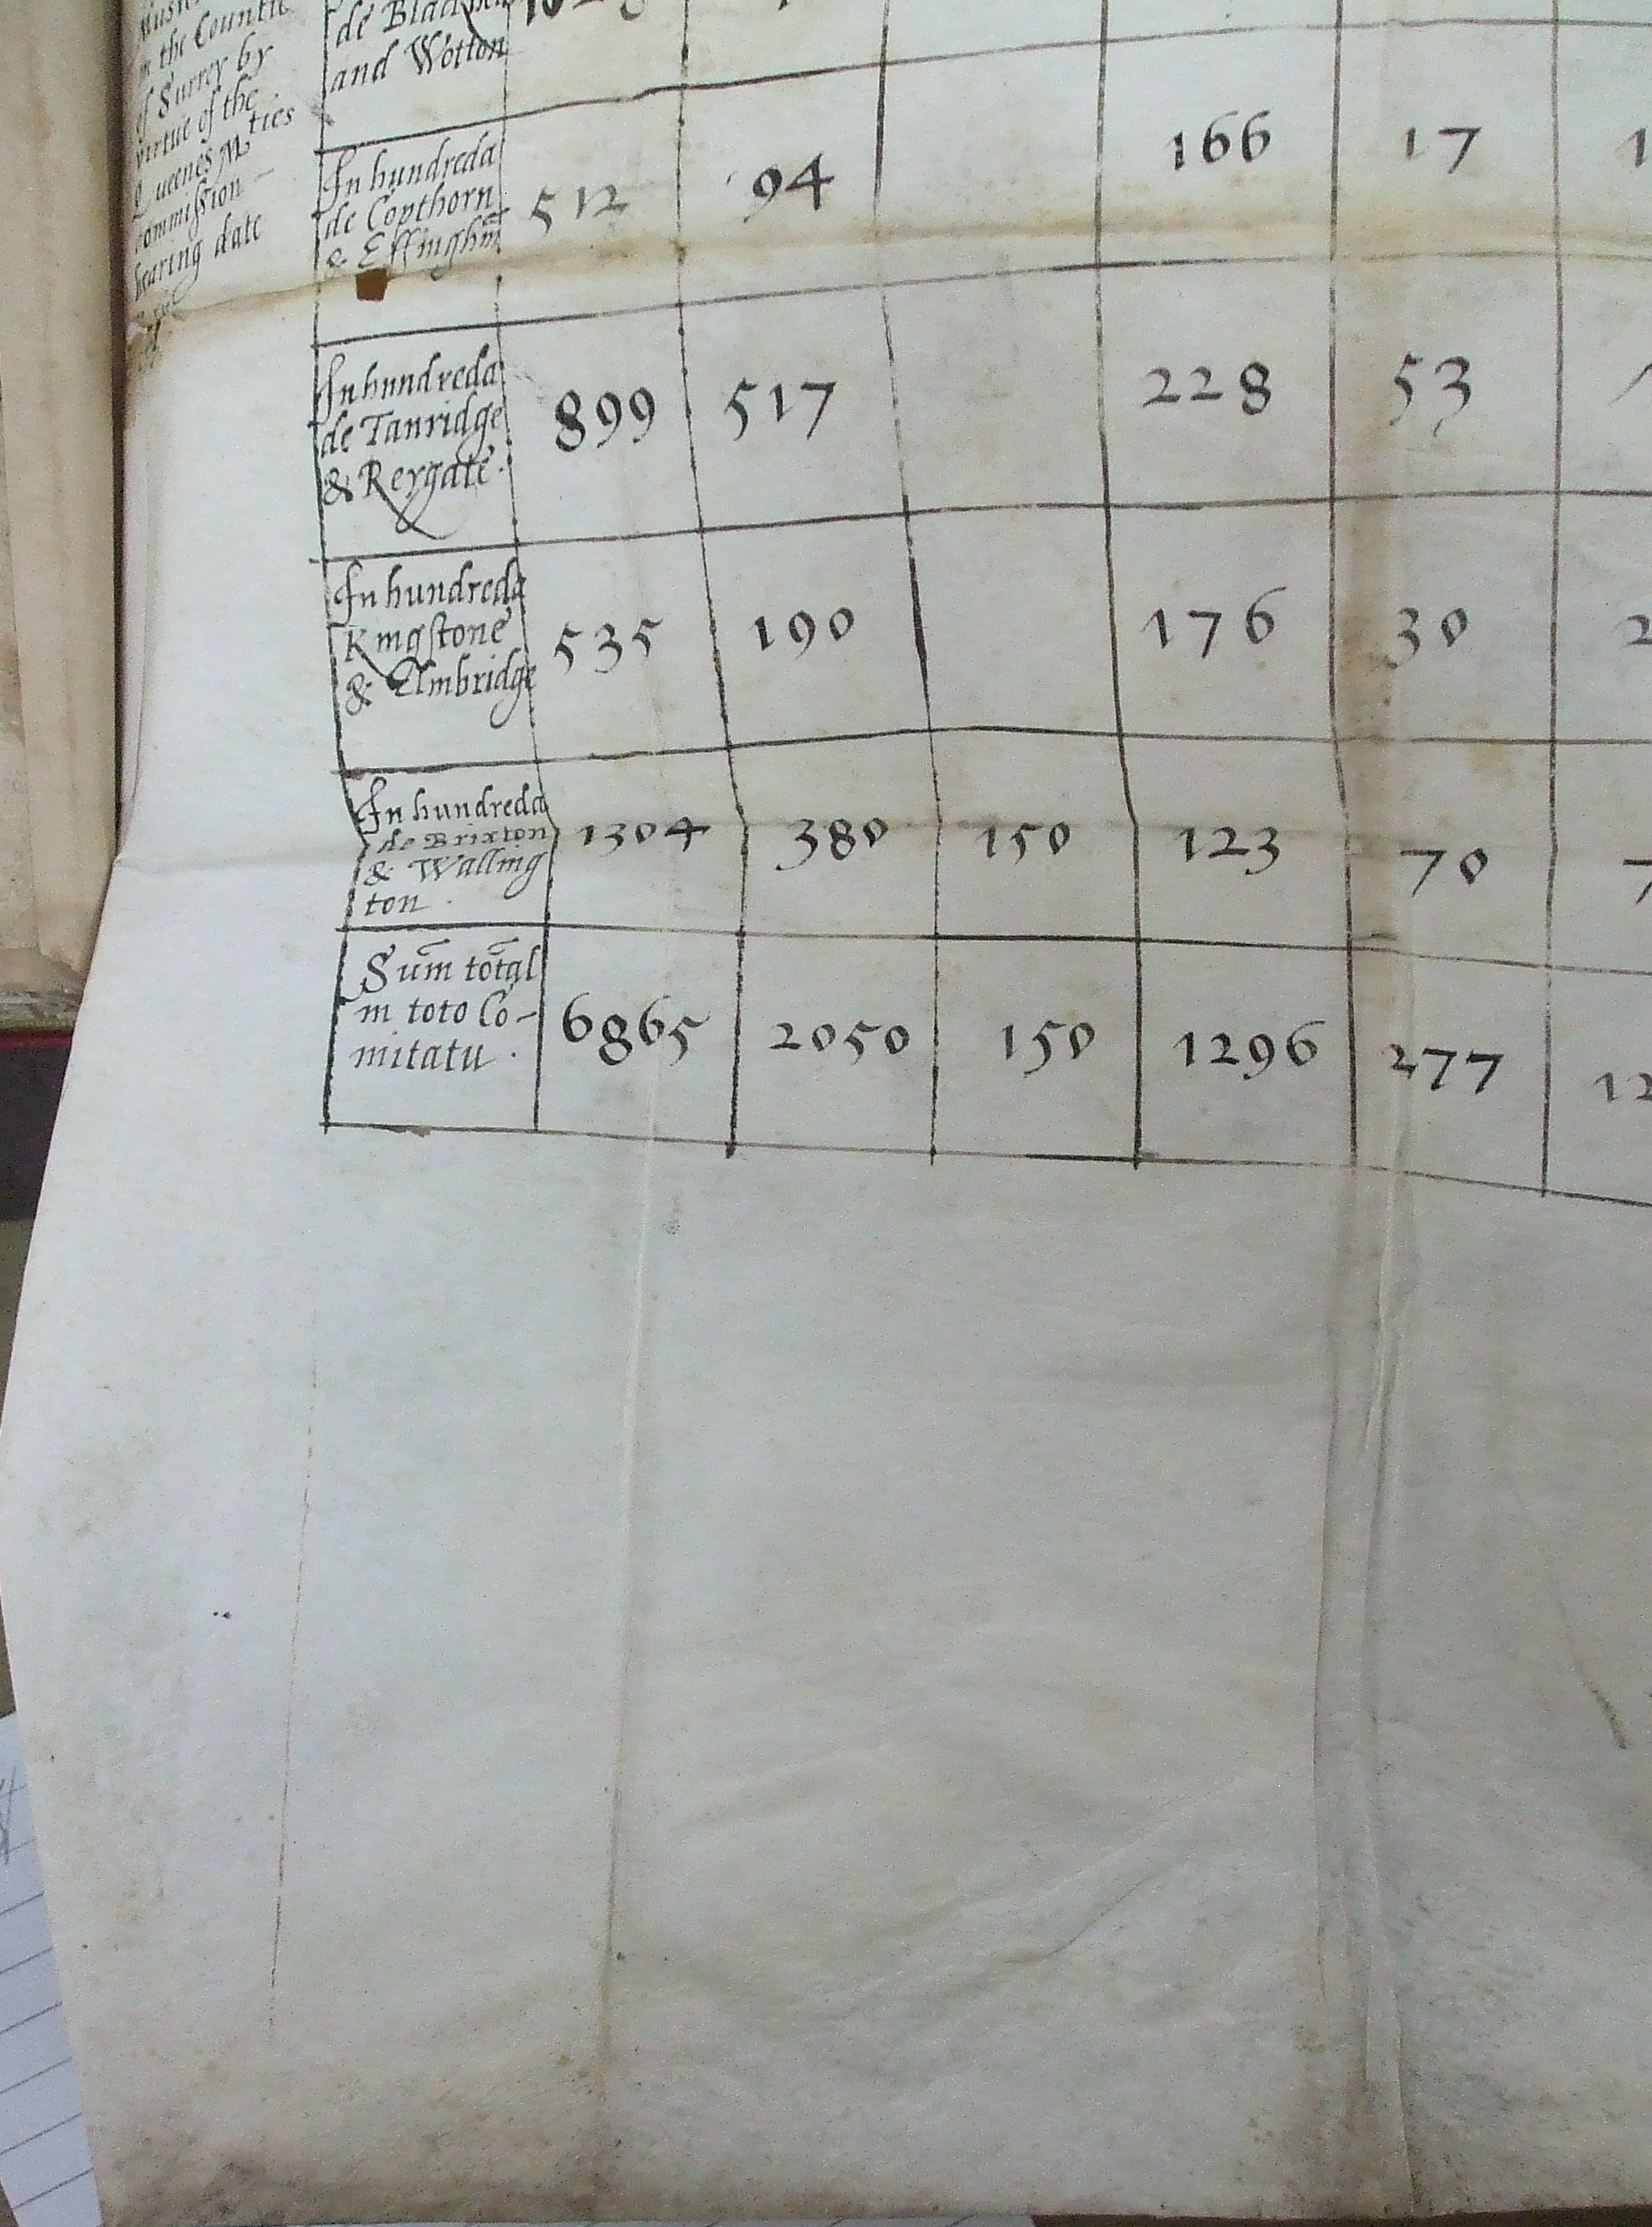 in the Countie
of Surrey by
virtue of the
Queenes Mties
commission
bearing date
and Wotton
In hundreda
de Copthorn
& Effinghm̃
512 94 166 17
In hundreda
de Tanridge
& Reygate.
899 517 228 53
In hundreda
Kingstone
& Elmbridge
535 190 176 30
In hundreda
de Brixton
& Walling
ton.
1304 380 150 123 70
Sum̃ totãl
in toto Co-
mitatu.
6865 2050 150 1296 277